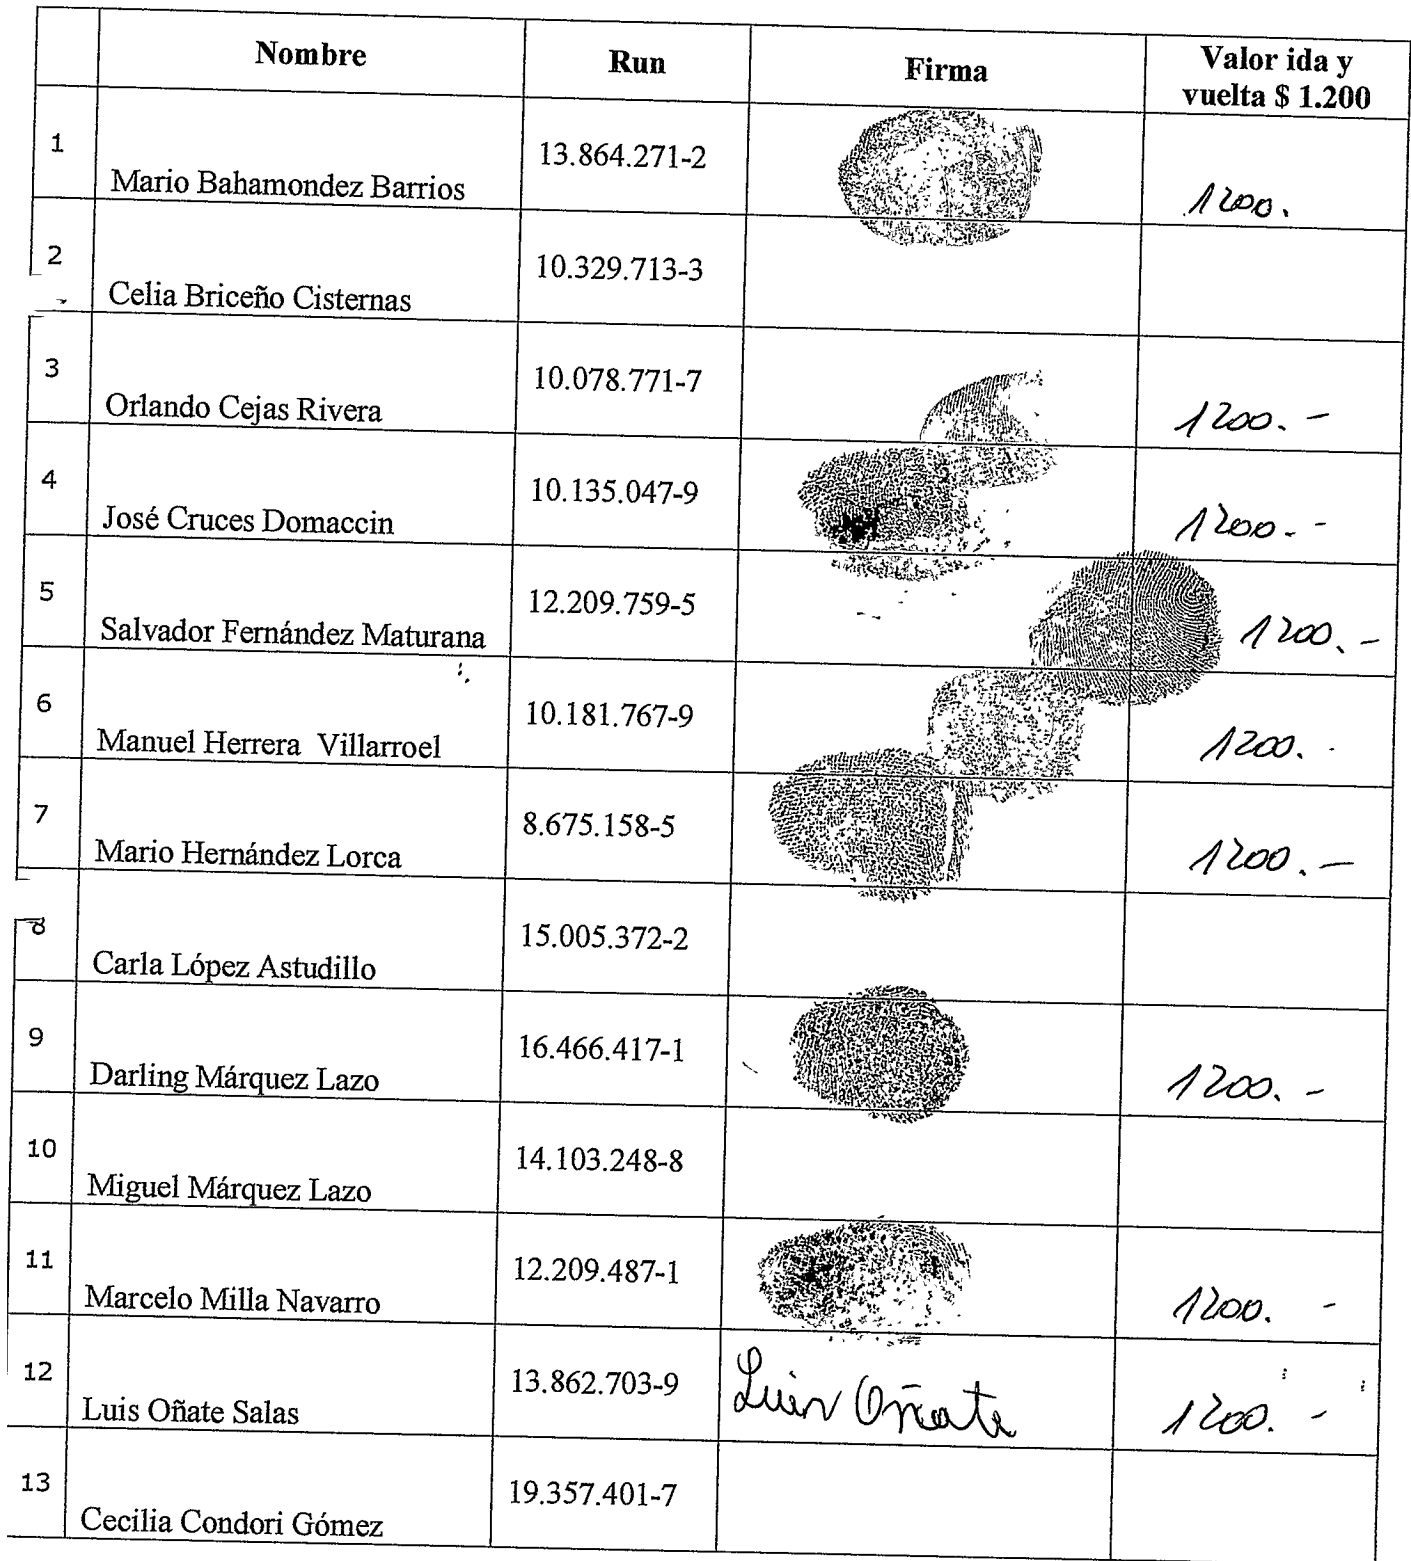 Nombre Run Firma Valor ida y
vuelta $ 1.200
1 Mario Bahamondez Barrios 13.864.271-2 1200.
2 Celia Briceño Cisternas 10.329.713-3
3 Orlando Cejas Rivera 10.078.771-7 1200.-
4 José Cruces Domaccin 10.135.047-9 1200.-
5 Salvador Fernández Maturana 12.209.759-5 1200.-
6 Manuel Herrera Villarroel 10.181.767-9 1200.
7 Mario Hernández Lorca 8.675.158-5 1200.-
8 Carla López Astudillo 15.005.372-2
9 Darling Márquez Lazo 16.466.417-1 1200.-
10 Miguel Márquez Lazo 14.103.248-8
11 Marcelo Milla Navarro 12.209.487-1 1200. -
12 Luis Oñate Salas 13.862.703-9 Luis Oñate 1200. -
13 Cecilia Condori Gómez 19.357.401-7